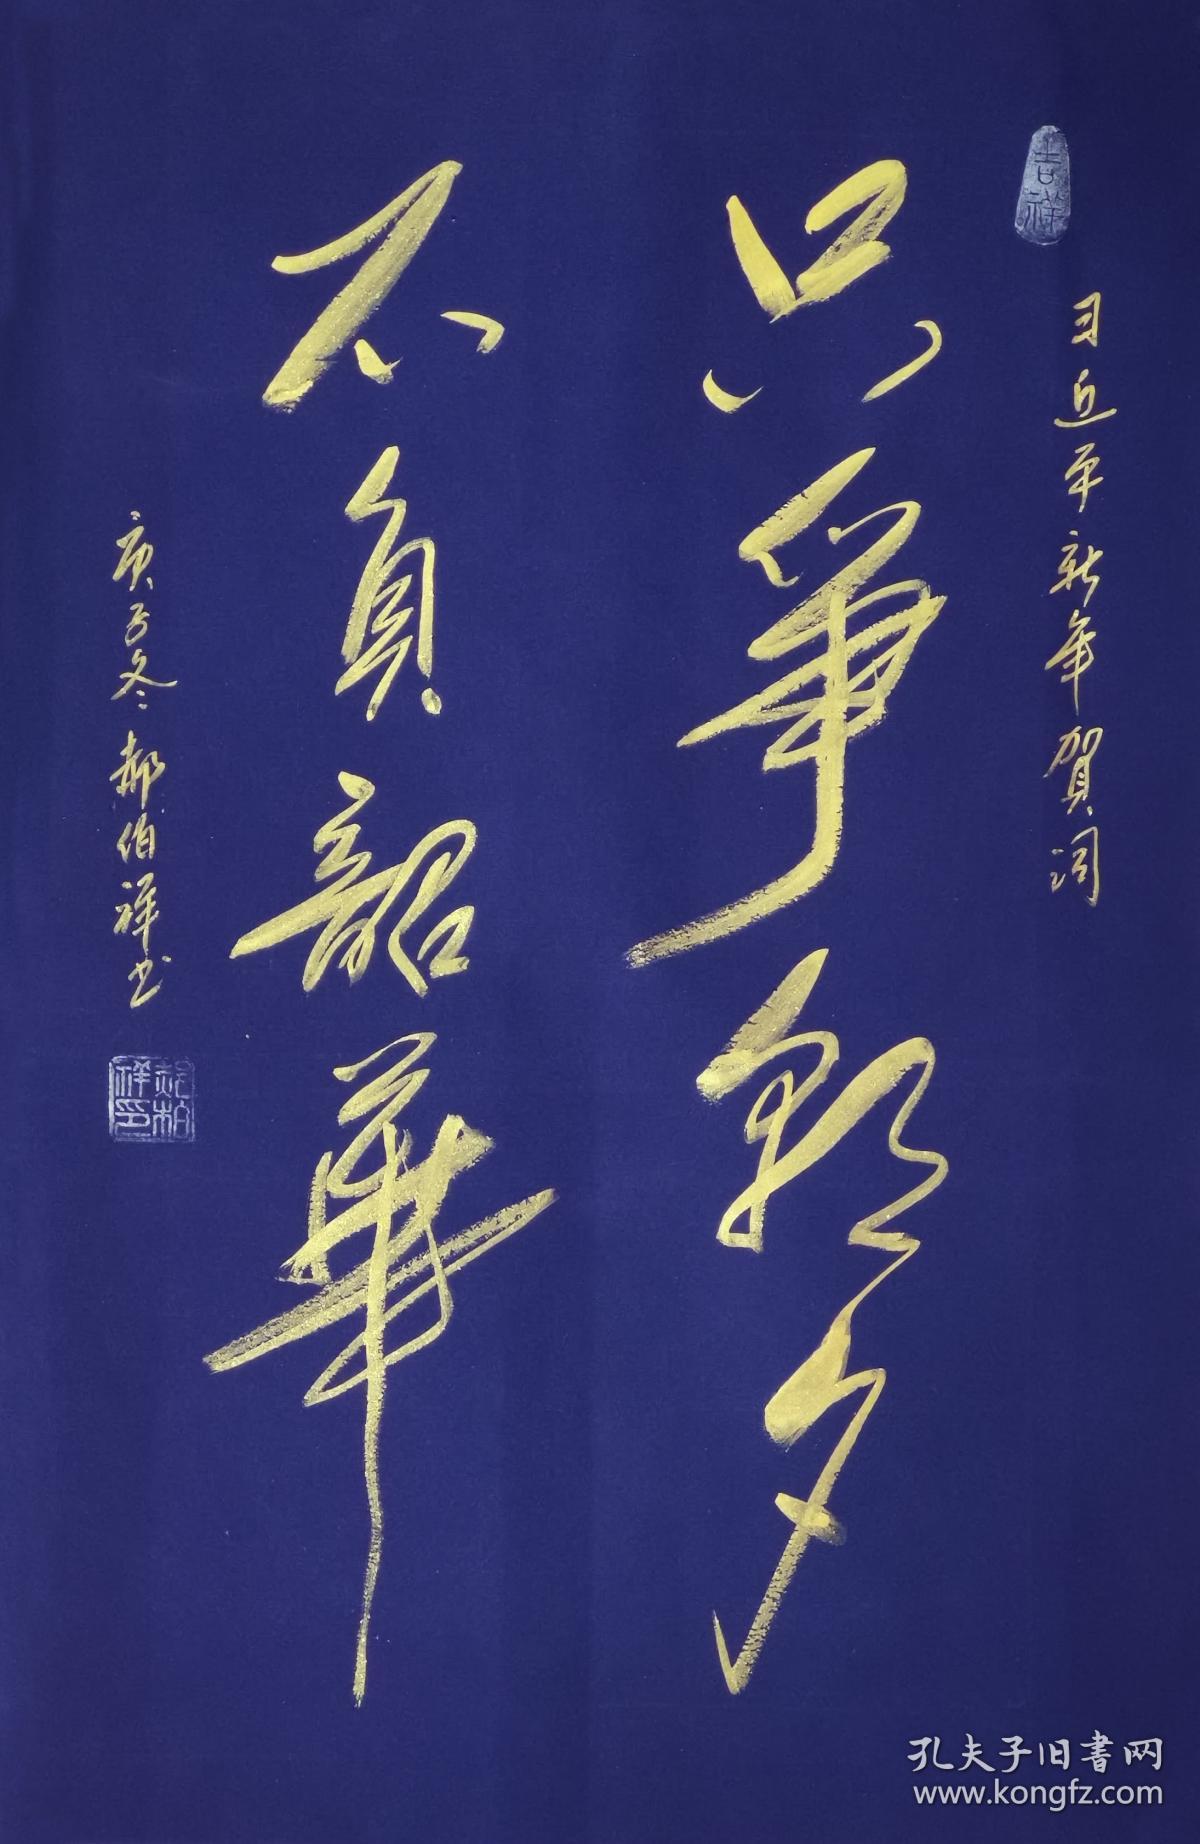 吉祥
习近平新年贺词
只争朝夕
不负韶华
庚子冬郝伯祥书
郝柏祥印
孔夫子旧書网
www.kongfz.com